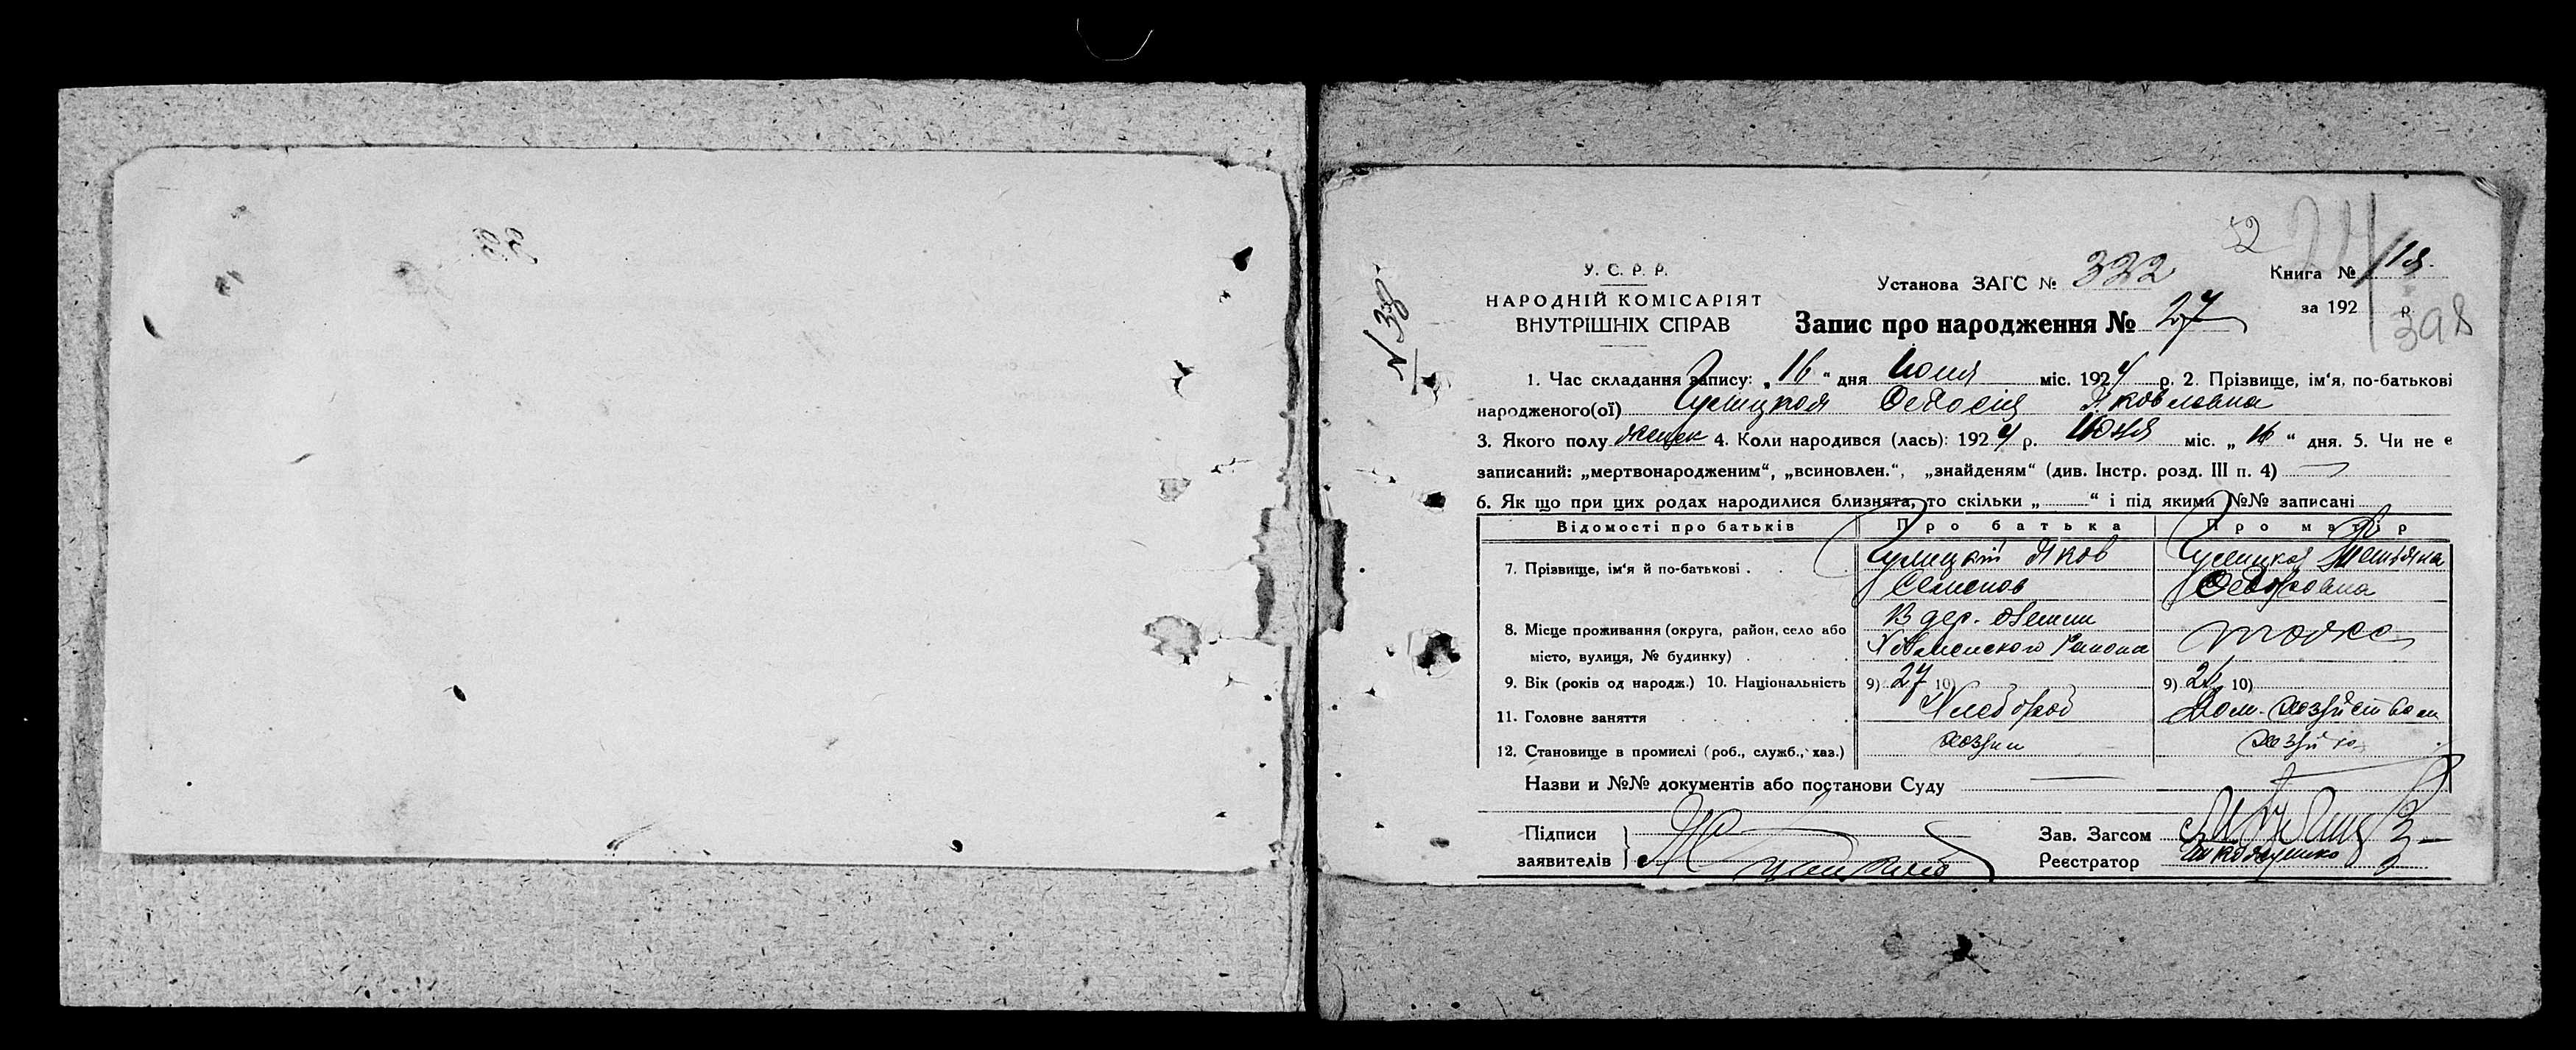 52
24
У. С. Р. Р.
НАРОДНІЙ КОМІСАРІЯТ
ВНУТРІШНІХ СПРАВ
Установа ЗАГС № 332
Книга №
за 192 р.
398
N 38
Запис про народження № 27
1. Час складання запису: „ 16 “ дня Июня міс. 1924 р. 2. Прізвище, ім'я, по-батькові
народженого(ої) Федосия Яковлевна
3. Якого полу женск 4. Коли народився (лась): 1924 р. Июня міс. „ 16 “ дня. 5. Чи не є
записаний: „мертвонародженим“, „всиновлен.“, „знайденям“ (див. Інстр. розд. III п. 4)
6. Як що при цих родах народилися близнята, то скільки „ “ і під якими №№ записані
Відомості про батьків Про батька Про матір
7. Прізвище, ім'я й по-батькові . Яков Татьяна
Семенов Федоровна
8. Місце проживання (округа, район, село або В дер.
місто, вулиця, № будинку) . Района тоже
9. Вік (років од народж.) 10. Національність 9) 27 10) 9) 10)
11. Головне заняття Хлебороб Дом. хозяйством
12. Становище в промислі (роб., служб., хаз.) хозяин хозяйка
Назви и №№ документів або постанови Суду
Підписи
заявителів
Зав. Загсом
Реєстратор